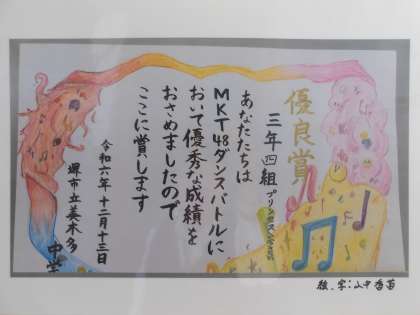 優良賞
三年四組
あなたたちは
MKT48ダンスバトルに
おいて優秀な成績を
おさめましたので
ここに賞します
令和六年 十二月十三日
堺市立美木多
中学
絵、字:山中香苗